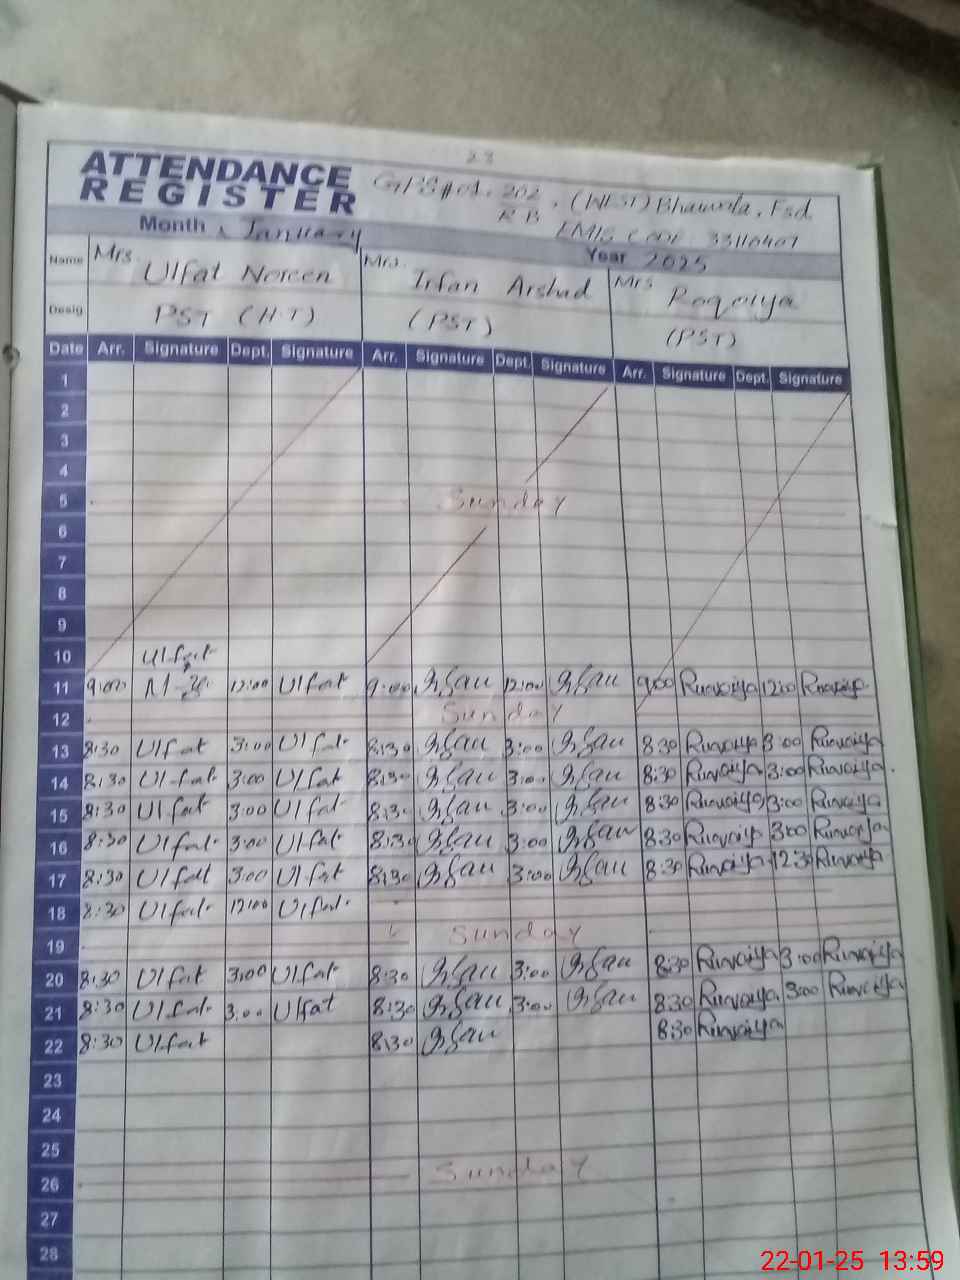 23
ATTENDANCE REGISTER
202/RB, (WEST) Bhaiwala, Fsd
Month January EMIS CODE 33110407
Year 2025
Name Mrs. Ulfat Noreen Mrs. Irfan Arshad Mrs Roqaiya
Desig. PST (H.T) (PST) (PST)
Date Arr. Signature Dept. Signature Arr. Signature Dept. Signature Arr. Signature Dept. Signature
1
2
3
4
5 Sunday
6
7
8
9
10 Ulfat
11 9:00 12:00 Ulfat 9:00 Irfan 12:00 Irfan 9:00 Ruqaiya 12:00 Ruqaiya
12 Sunday
13 8:30 Ulfat 3:00 Ulfat 8:30 Irfan 3:00 Irfan 8:30 Ruqaiya 3:00 Ruqaiya
14 8:30 Ulfat 3:00 Ulfat 8:30 Irfan 3:00 Irfan 8:30 Ruqaiya 3:00 Ruqaiya
15 8:30 Ulfat 3:00 Ulfat 8:30 Irfan 3:00 Irfan 8:30 Ruqaiya 3:00 Ruqaiya
16 8:30 Ulfat 3:00 Ulfat 8:30 Irfan 3:00 Irfan 8:30 Ruqaiya 3:00 Ruqaiya
17 8:30 Ulfat 3:00 Ulfat 8:30 Irfan 3:00 Irfan 8:30 Ruqaiya 12:30 Ruqaiya
18 8:30 Ulfat 12:00 Ulfat
19 Sunday
20 8:30 Ulfat 3:00 Ulfat 8:30 Irfan 3:00 Irfan 8:30 Ruqaiya 3:00 Ruqaiya
21 8:30 Ulfat 3:00 Ulfat 8:30 Irfan 3:00 Irfan 8:30 Ruqaiya 3:00 Ruqaiya
22 8:30 Ulfat 8:30 Irfan 8:30 Ruqaiya
23
24
25
26 Sunday
27
28
22-01-25 13:59